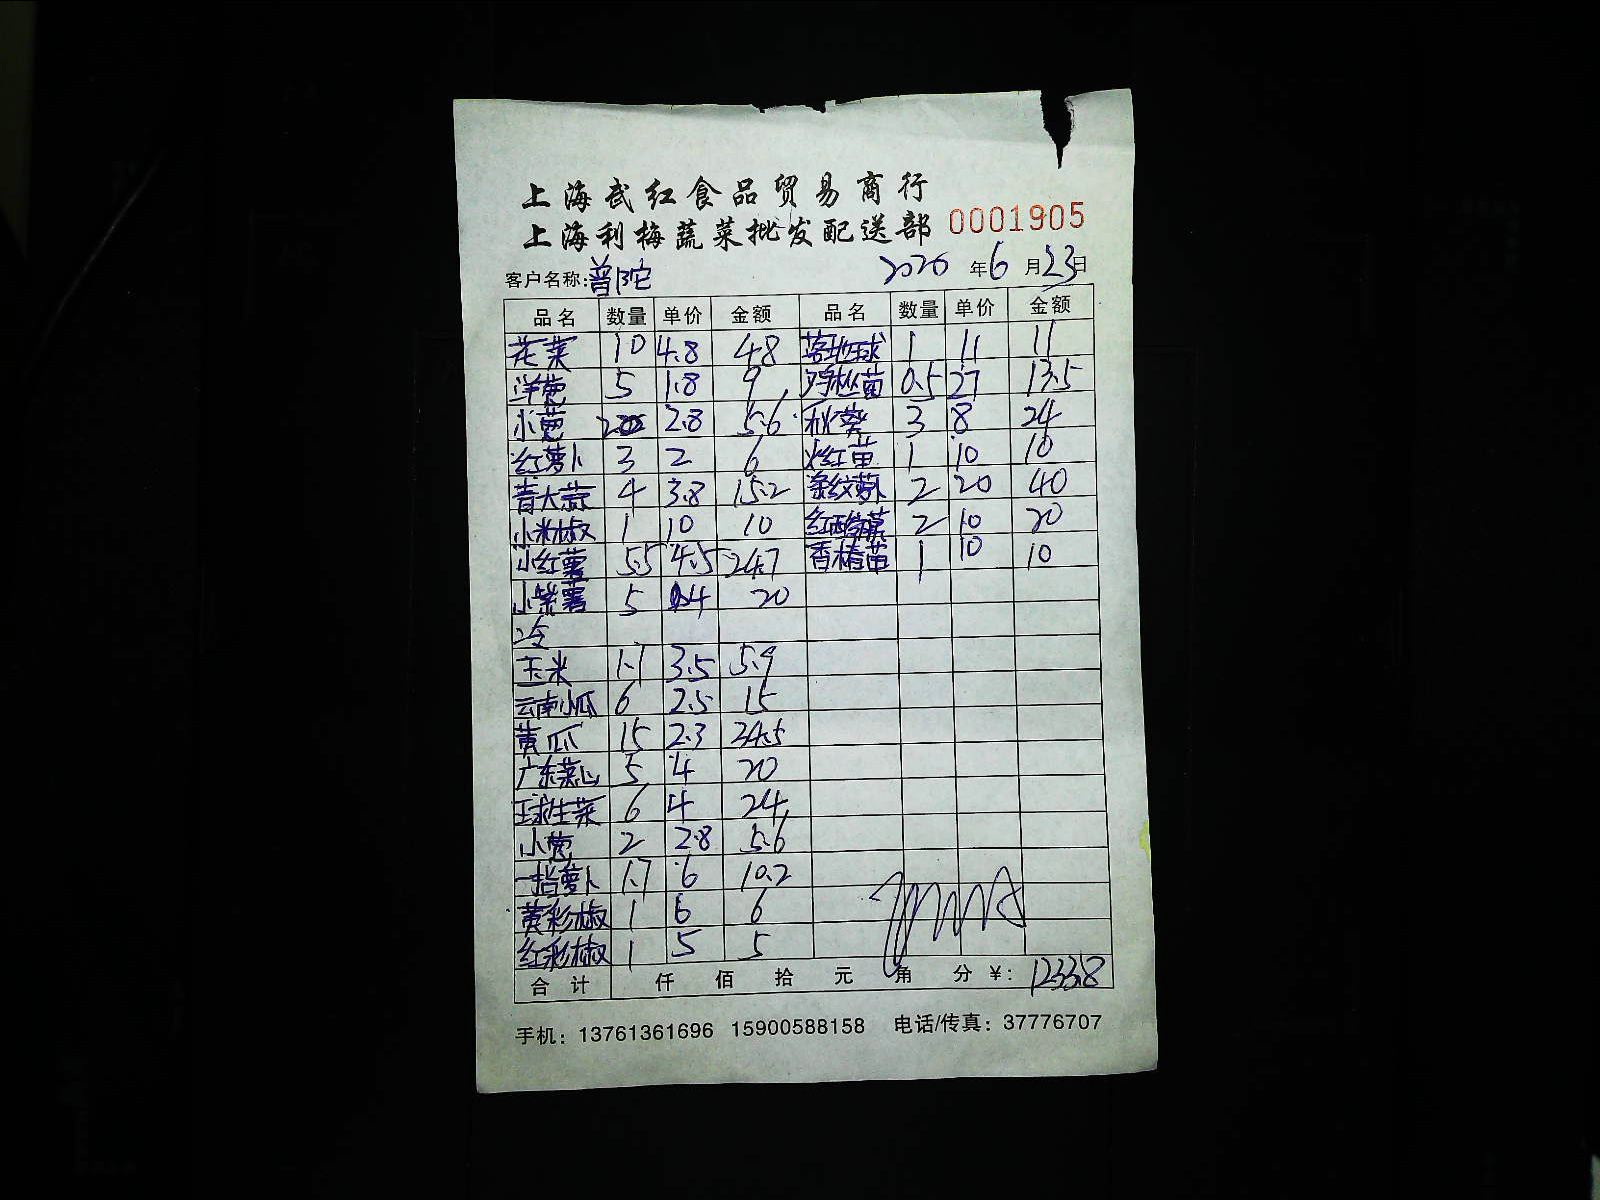 上海武红食品贸易商行
上海利梅蔬菜批发配送部 0001905
客户名称:普陀 2020 年 6 月 23 日
品名 数量 单价 金额 品名 数量 单价 金额
花菜 10 4.8 48 落地球 1 11 11
洋葱 5 1.8 9 鸡枞菌 0.5 27 13.5
小葱 2 2.8 5.6 秋葵 3 8 24
红萝卜 3 2 6 火红苗 1 10 10
青大蒜 4 3.8 15.2 条纹萝卜 2 20 40
小米椒 1 10 10 红酸模 2 10 20
小红薯 5.5 4.5 24.7 香椿苗 1 10 10
小紫薯 5 4 20
冷
玉米 1.7 3.5 5.9
云南小瓜 6 2.5 15
黄瓜 15 2.3 24.5
广东菜心 5 4 20
球生菜 6 4 24
小葱 2 2.8 5.6
一指萝卜 1.7 6 10.2
黄彩椒 1 6 6
红彩椒 1 5 5
合计 仟 佰 拾 元 角 分 ¥: 1233.8
手机: 13761361696 15900588158 电话/传真: 37776707